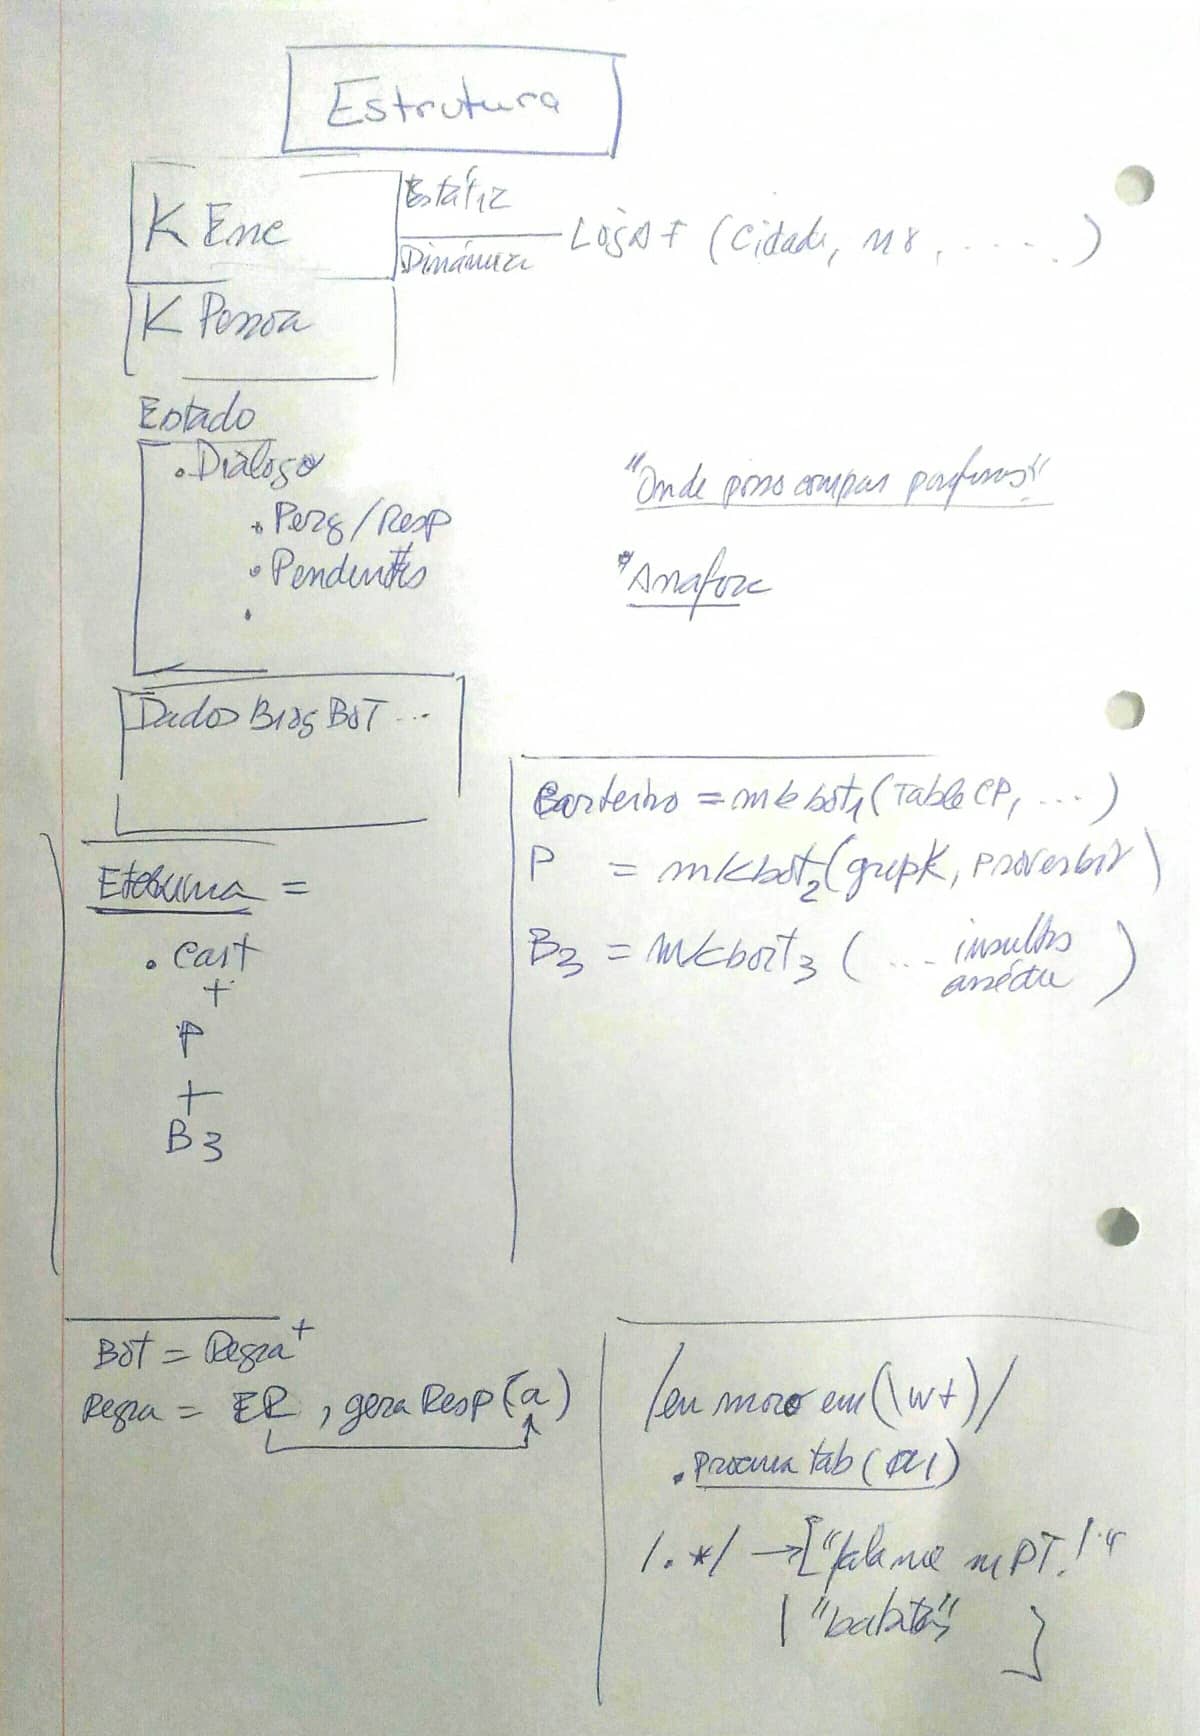 Estrutura
K Enc
Estática
Dinâmica
(Cidade, nº, ....)
K Pessoa
Estado
. Diálogo
. Perg/Resp
. Pendentes
.
"Onde posso comprar parafusos"
Anáfora
Dados Biog Bot ...
Carteiro = mkbot1(TableCP, ...)
P = mkbot2(grepk, proverbio)
B3 = mkbot3(... insultos
=
. Cart
+
P
+
B3
Bot = Regra+
Regra = ER, geraResp(a)
/eu moro em (\w+)/
. Procura tab($1)
/.*/ → ["fala-me em PT!"
| "batatas"
]